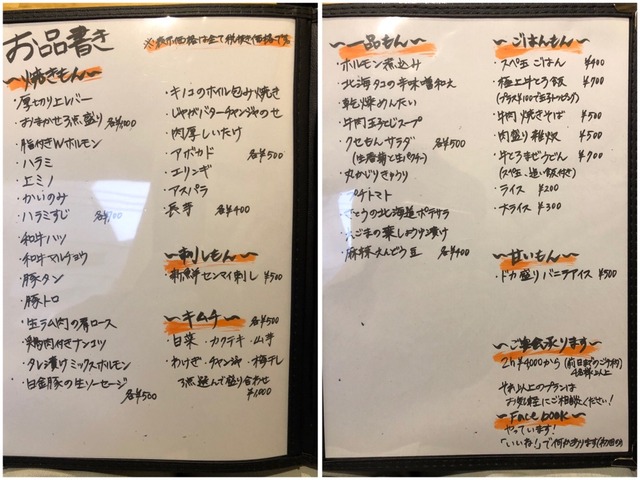 お品書き
※表示価格は全て税抜き価格です
〜焼きもん〜
・厚切り上レバー
・おまかせ3点盛り 各¥1000
・脂付きWホルモン
・ハラミ
・上ミノ
・かいのみ
・ハラミすじ 各¥700
・和牛ハツ
・和牛マルチョウ
・豚タン
・豚トロ
・生ラム肉の肩ロース
・鶏肉付きナンコツ
・タレ漬けミックスホルモン
・白金豚の生ソーセージ
各¥500
・キノコのホイル包み焼き
・じゃがバターチャンジャのせ
・肉厚しいたけ
・アボカド 各¥500
・エリンギ
・アスパラ
・長芋 各¥400
〜刺しもん〜
・新鮮センマイ刺し ¥500
〜キムチ〜 各¥500
・白菜・カクテキ・山芋
・わけぎ・チャンジャ・梅干し
3点選んで盛り合わせ
¥1000
〜一品もん〜
・ホルモン煮込み
・北海タコの辛味噌和え
・乾燥めんたい
・牛肉玉子とじスープ
・クセもんサラダ 各¥500
(生春菊と生パクチー)
・丸かじりきゅうり
・プチトマト
・さとうの北海道ポテサラ
・えごまの葉しょうゆ漬け
・麻辣えんどう豆 各¥400
〜ごはんもん〜
・スペ玉ごはん ¥400
・極上牛とろ飯 ¥700
(プラス¥100で玉子トッピング)
・牛肉焼きそば ¥500
・肉盛り雑炊 ¥500
・牛とろまぜうどん ¥700
(スペ玉、追い飯付き)
・ライス ¥200
・大ライス ¥300
〜甘いもん〜
・ドカ盛りバニラアイス ¥500
〜ご宴会承ります〜
2h¥4000から(前日までのご予約)
4名様以上
それ以上のプランは
お気軽にご相談ください!
〜Face book〜
やっています!
「いいね!」で何かあります(初回のみ)